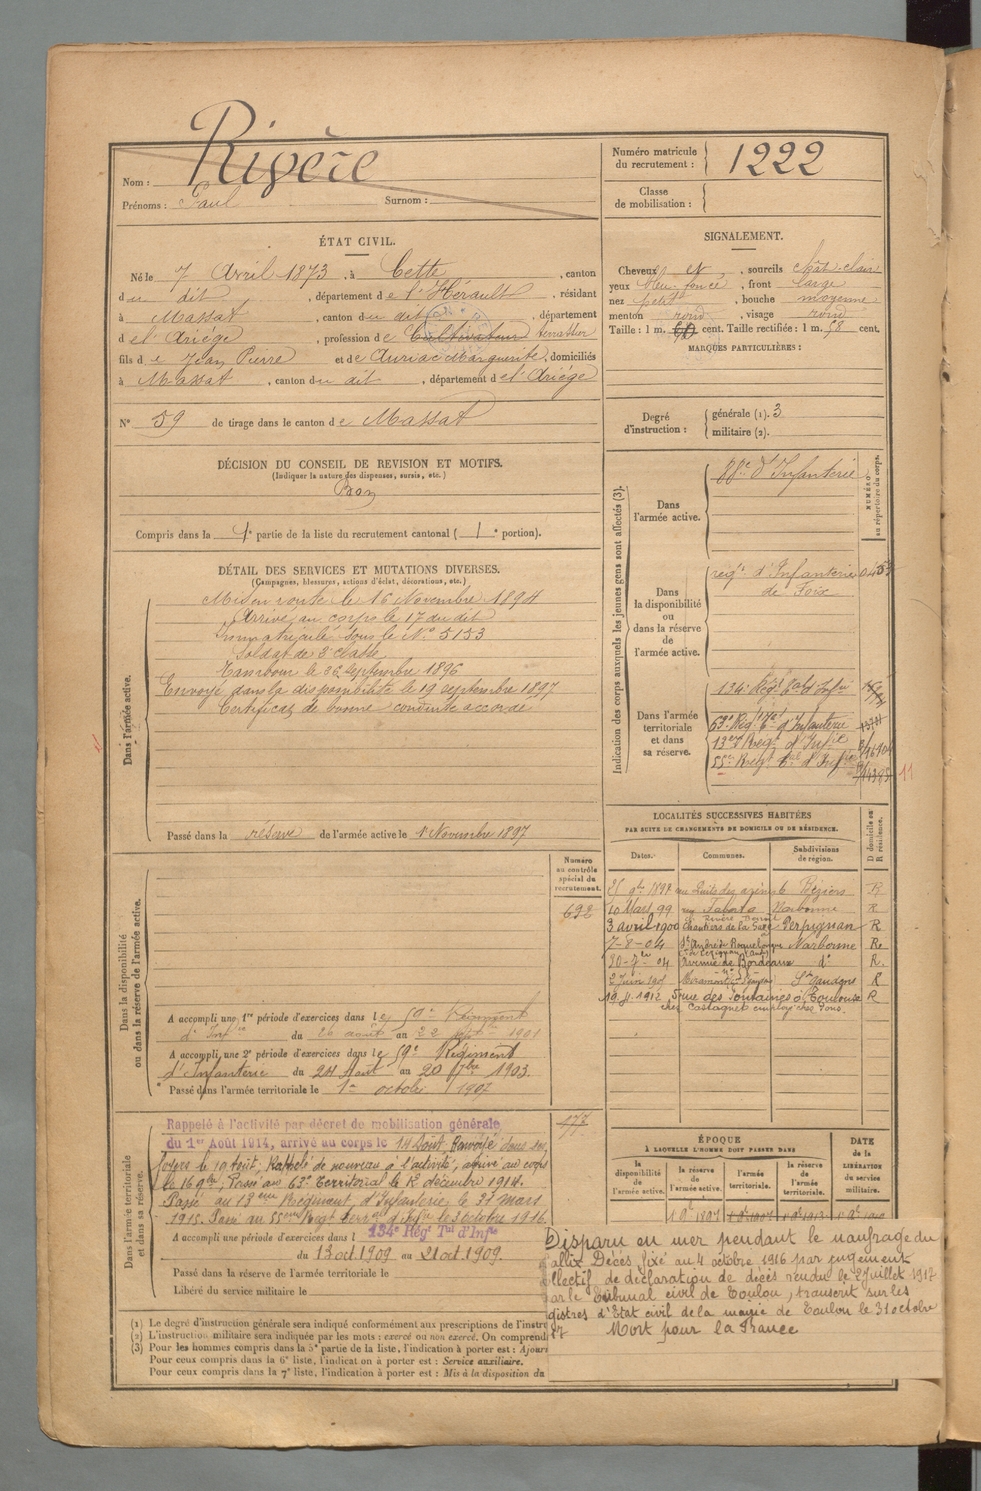 Rivère
Nom :
Prénoms : Paul Surnom :
Numéro matricule du recrutement : 1222
Classe de mobilisation :
ÉTAT CIVIL.
Né le 7 Avril 1873, à Cette, canton
du dit, département de l'Hérault, résidant
à Massat, canton du dit, département
d el' Ariége, profession de Cultivateur terrassier
fils de Jean Pierre et de Auriac Marguerite, domiciliés
à Massat, canton du dit, département d el' Ariége
N° 59 de tirage dans le canton de Massat
SIGNALEMENT.
Cheveux et, sourcils chât-clair
yeux bleu foncé, front large
nez petit, bouche moyenne
menton rond, visage rond
Taille : 1 m. cent. Taille rectifiée : 1 m. 58 cent.
MARQUES PARTICULIÈRES :
Degré d'instruction : générale (1). 3
militaire (2).
DÉCISION DU CONSEIL DE REVISION ET MOTIFS.
(Indiquer la nature des dispenses, sursis, etc.)
Bon
Compris dans la 1e partie de la liste du recrutement cantonal ( 1e portion).
DÉTAIL DES SERVICES ET MUTATIONS DIVERSES.
(Campagnes, blessures, actions d'éclat, décorations, etc.)
Dans l'armée active.
Mis en route le 16 Novembre 1894
Arrivé au corps le 17 du dit
Immatriculé sous le N° 5153
Soldat de 2e classe
Tambour le 26 septembre 1896
Envoyé dans la disponibilité le 19 septembre 1897
Certificat de bonne conduite accordé
Passé dans la réserve de l'armée active le 1 Novembre 1897
Indication des corps auxquels les jeunes gens sont affectés (3).
NUMÉRO au répertoire du corps.
Dans l'armée active.
88e d'Infanterie
Dans la disponibilité ou dans la réserve de l'armée active.
regt d'Infanterie
de Foix
Dans l'armée territoriale et dans sa réserve.
134e Regt tal d'Infie
63e Regt tal d'Infanterie
13e Regt d'Infie
55e Regt tal d'Infie
11
LOCALITÉS SUCCESSIVES HABITÉES
PAR SUITE DE CHANGEMENTS DE DOMICILE OU DE RÉSIDENCE.
Dates. Communes. Subdivisions de région. D domicile ou R résidence.
Béziers R
10 Mars 99 Narbonne R
3 avril 1900 Chantiers de la Gare Perpignan R
7-8-04 St André de Roquelongue Narbonne Re
Avenue de Bordeaux do R.
2 Juin St Gaudens R
1912 5 rue des Fontaines à Toulouse R
chez Castagnet employé chez Pons.
Dans la disponibilité ou dans la réserve de l'armée active.
Numéro au contrôle spécial du recrutement.
692
A accompli une 1re période d'exercices dans le 59e Régiment
d'Infie du 26 août au 22 septbre 1901
A accompli une 2e période d'exercices dans le 59e Régiment
d'Infanterie du 24 Août au 20 7bre 1903.
Passé dans l'armée territoriale le 1er octobre 1907
Dans l'armée territoriale et dans sa réserve.
177
Rappelé à l'activité par décret de mobilisation générale
du 1er Août 1914, arrivé au corps le 14 Août, Renvoyé dans ses
foyers le 19 Août, Rappelé de nouveau à l'activité, arrivé au corps
le 16 9bre, Passé au 63e Territorial le 12 décembre 1914.
Passé au 13ème Régiment d'Infanterie le 31 mars
1915. Passé au 55ème Régt Terral d'Infie le 3 octobre 1916.
A accompli une période d'exercices dans l 134e Régt Tal d'Infie
du 13 oct. 1909 au 21 oct. 1909.
Passé dans la réserve de l'armée territoriale le
Libéré du service militaire le
ÉPOQUE
À LAQUELLE L'HOMME DOIT PASSER DANS
la disponibilité de l'armée active. la réserve de l'armée active. l'armée territoriale. la réserve de l'armée territoriale. DATE de la LIBÉRATION du service militaire.
Disparu en mer pendant le naufrage du
allia Décès fixé au 4 octobre 1916 par jugement
llectif de déclaration de décès rendu le 2 Juillet 1917
par le Tribunal civil de Toulon, transcrit sur les
gistres d'Etat civil de la mairie de Toulon le 31 octobre
17 Mort pour la France
(1) Le degré d'instruction générale sera indiqué conformément aux prescriptions de l'instru
(2) L'instruction militaire sera indiquée par les mots : exercé ou non exercé. On comprend
(3) Pour les hommes compris dans la 5e partie de la liste, l'indication à porter est : Ajourn
Pour ceux compris dans la 6e liste, l'indication à porter est : Service auxiliaire.
Pour ceux compris dans la 7e liste, l'indication à porter est : Mis à la disposition du